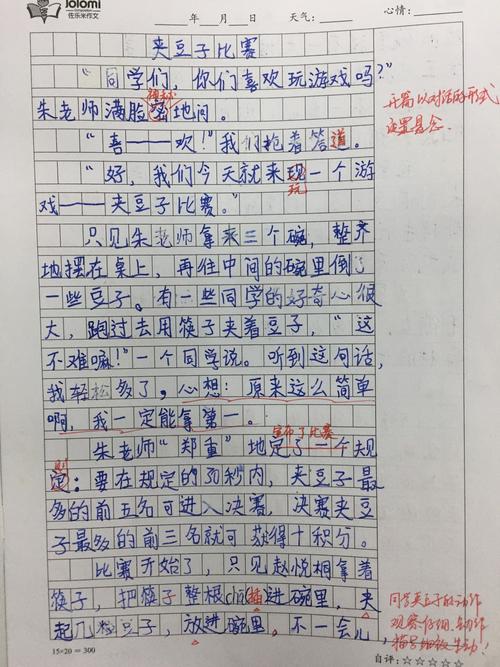 Jolomi
佐乐米作文
年 月 日 天气: 心情:
夹豆子比赛
“同学们,你们喜欢玩游戏吗?”
朱老师满脸神秘地问。
“喜——欢!”我们抢着答道。
“好,我们今天就来玩一个游
戏——夹豆子比赛。”
只见朱老师拿来三个碗,整齐
地摆在桌上,再往中间的碗里倒了
一些豆子。有一些同学的好奇心很
大,跑过去用筷子夹着豆子,“这
不难嘛!”一个同学说。听到这句话,
我轻松多了,心想:原来这么简单
啊,我一定能拿第一。
宣布了比赛
朱老师“郑重”地定了一个规
定:要在规定的30秒内,夹豆子最
则
多的前五名可进入决赛,决赛夹豆
子最多的前三名就可获得十积分。
比赛开始了,只见赵悦桐拿着
筷子,把筷子整根chā插进碗里,夹
起几粒豆子,放进碗里。不一会儿
15×20=300
自评:☆☆☆☆☆
开篇以对话的形式
设置悬念.
同学夹豆子的动作
观察仔细,
生动!